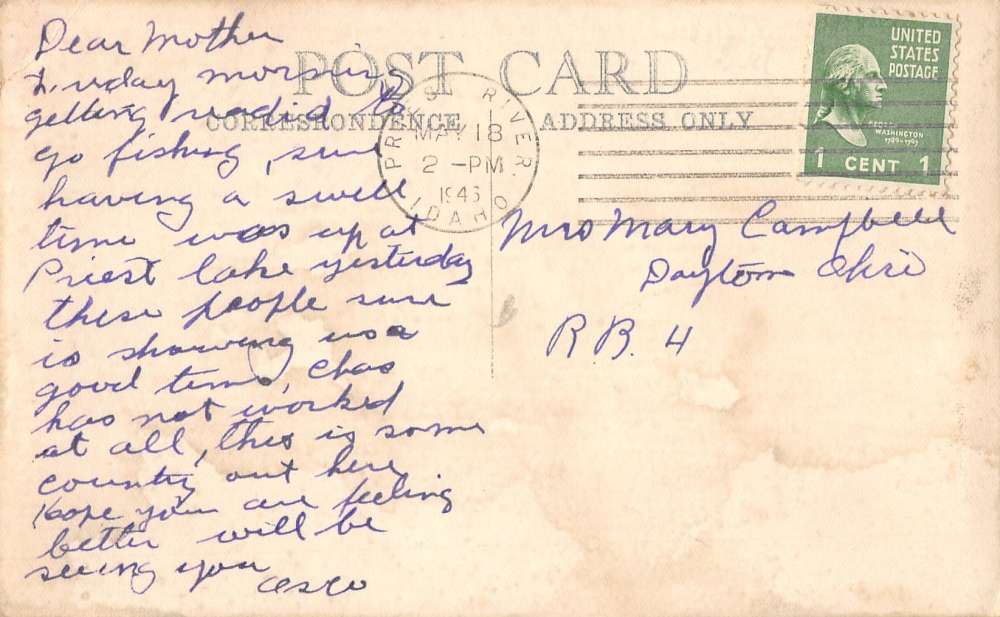 Dear Mother
morning
getting readid to
go fishing, sure
having a swell
time was up at
Priest lake yesterday
these people sure
is showing us a
good time, Chas
has not worked
at all, this is some
country out here
Hope you are feeling
better will be
seeing you
POST CARD
CORRESPONDENCE
ADDRESS ONLY
PRIEST RIVER.
MAY 18
2 -PM
IDAHO
UNITED
STATES
POSTAGE
GEORGE
WASHINGTON
1789-1797
1 CENT 1
Mrs Mary Campbell
Dayton Ohio
R.B. 4